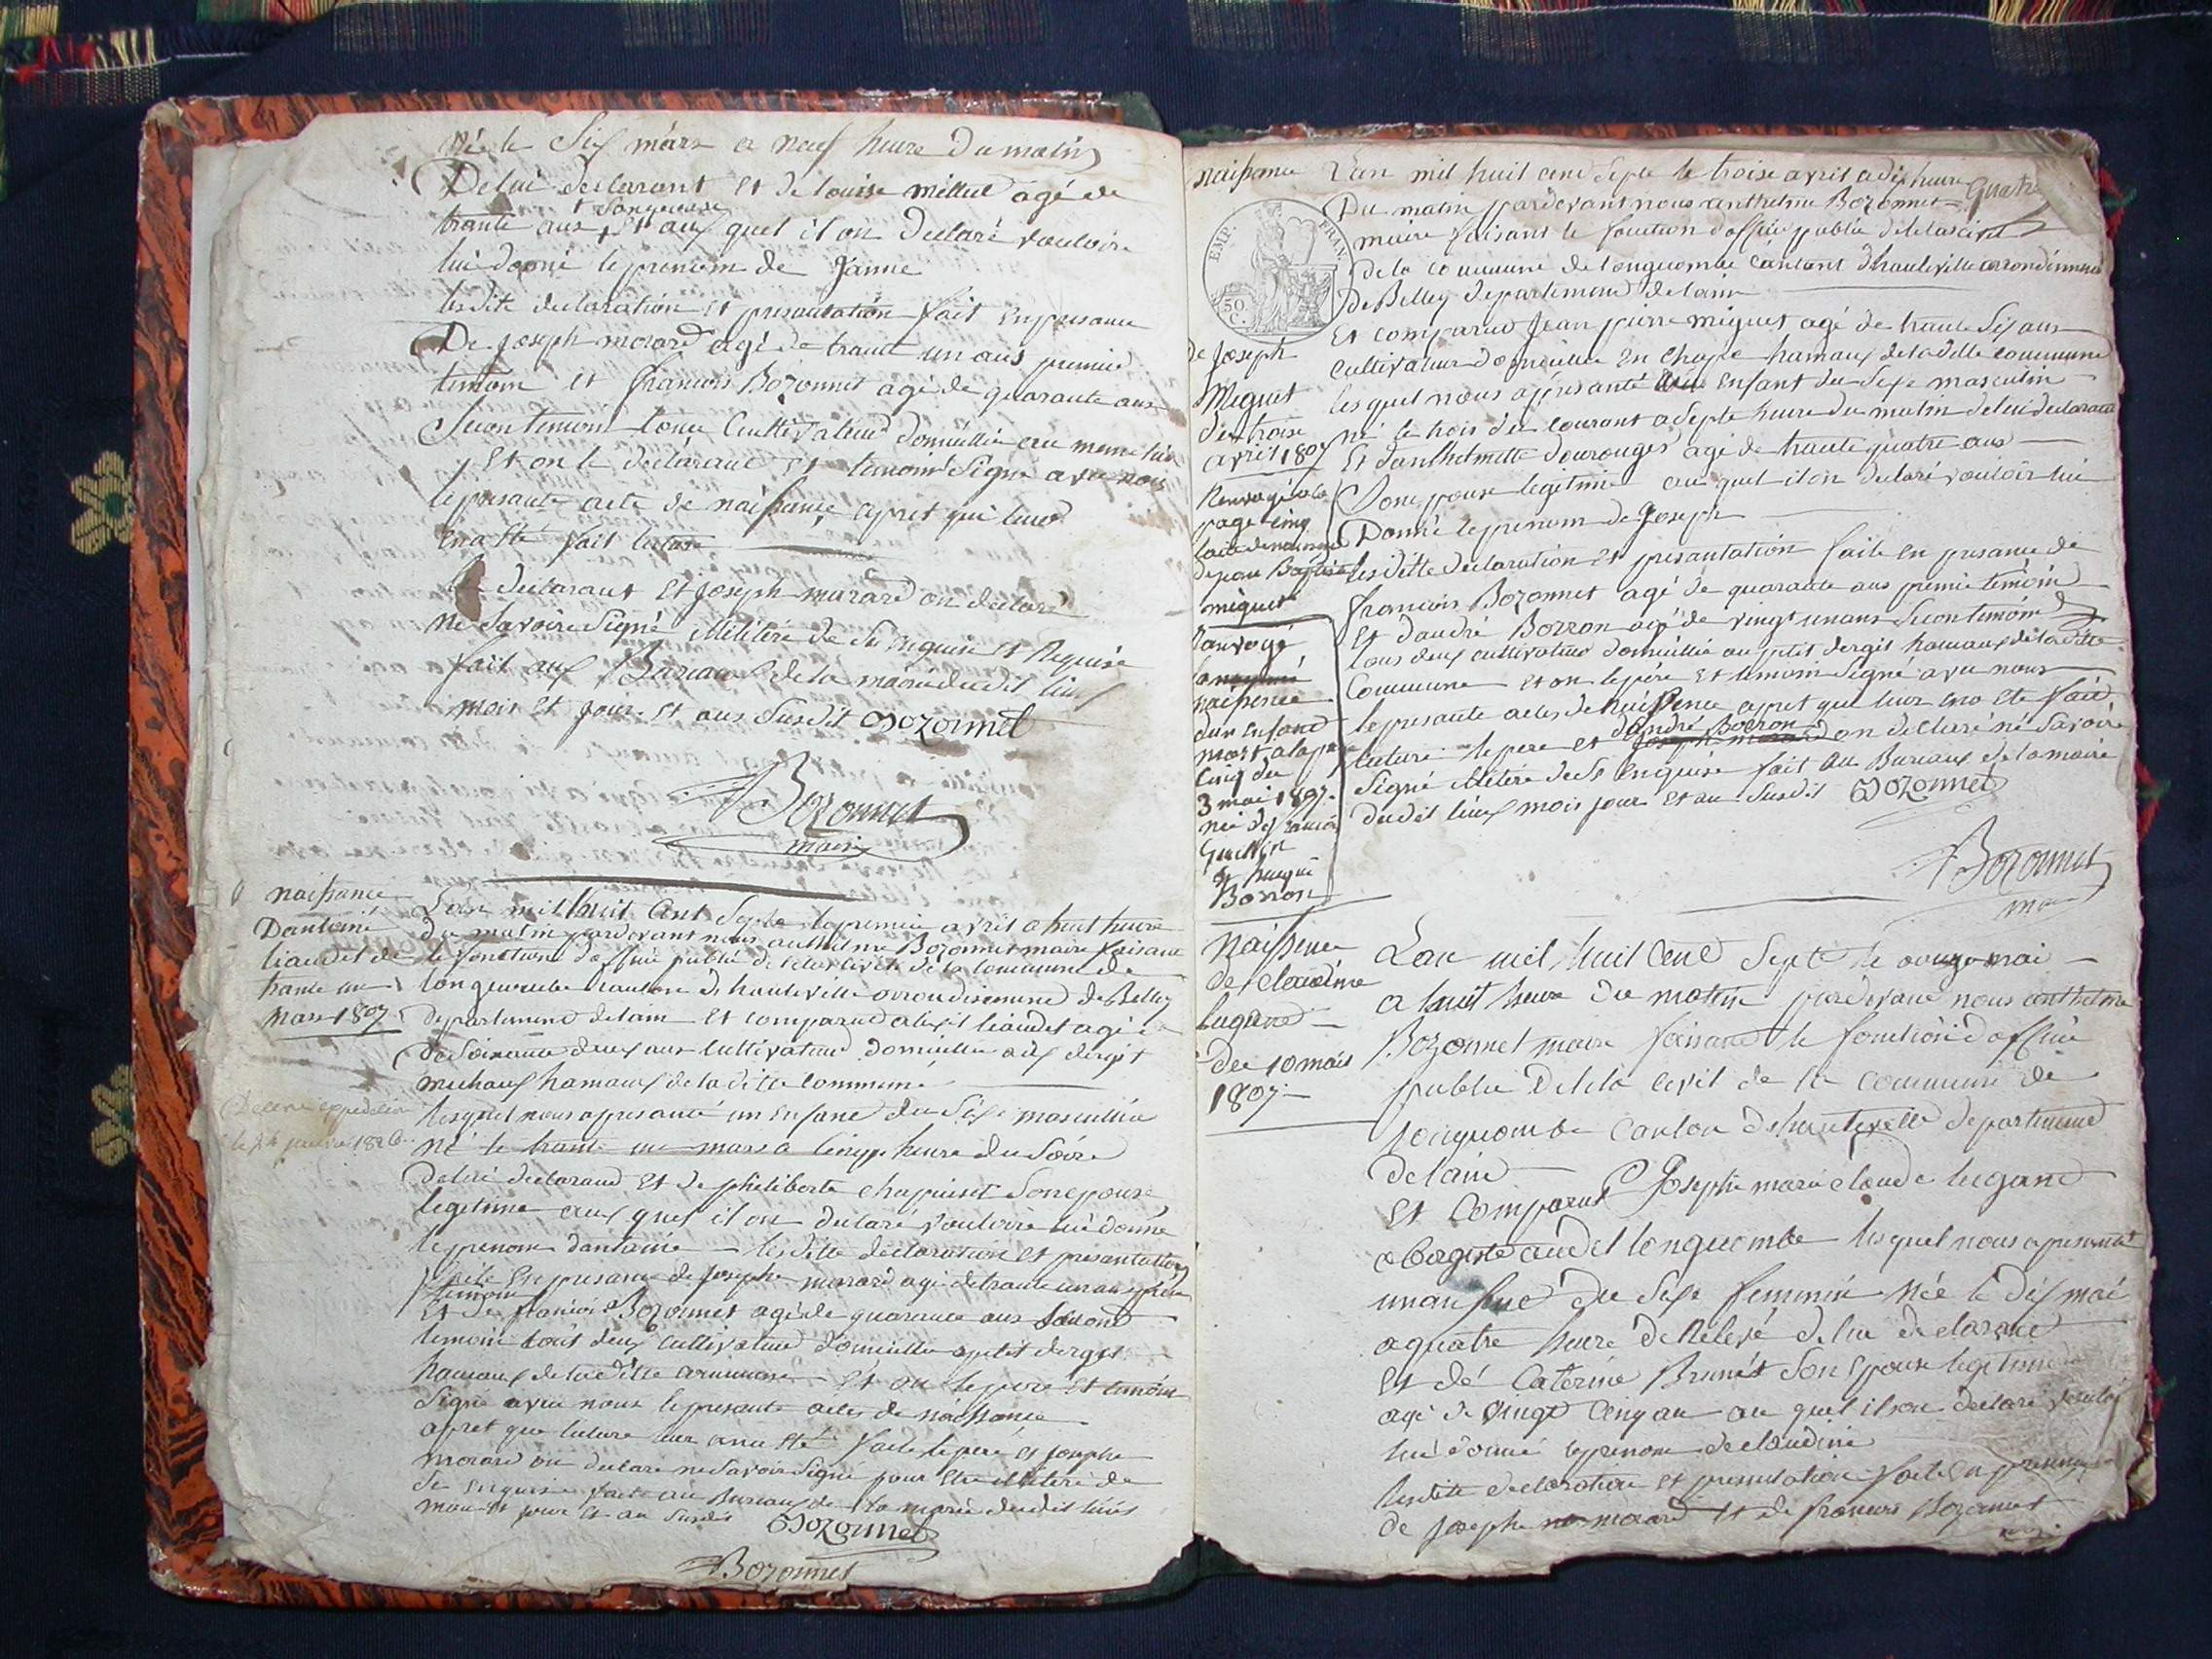 née le Six mars a neuf heure du matin
De lui declarant et de louise millet agé de
trante ans et aux quel il on declaré vouloire
lui donné le prenom de Janne
lesdite declaration et presantation fait en presance
De joseph morard agé de trante un ans premié
temoin et francois Bozonnet agé de quarante ans
Secon temoin tous Cultivateur domicillié au meme lieu
Et on le declarant et temoin Signé avec nous
le presante acte de naissance apret qui leur
en a eté fait lecture
le declarant et joseph morard on declaré
ne Savoire Signé illitéré de Se enquise et Requise
fait aux Bureaux de la mairie dudit lieux
mois et jour et ans Susdit Bozonnet
Bozonnet
maire
naissance
Dantoine
liaudet de
trante un
mars 1807
L'an mil huit Cent Septe le premié avril a huit heure
du matin pardevant nous anthelme Bozonnet maire faisant
le fonction d'officié publié de letat civile de la Commune de
longecombe Canton d'hauteville arrondisement de Belley
departement de lain et comparud alexit liaudet agé
de Soixante deux ans Cultivateur domicillié
michaux hamaux de la ditte commune
lesquel nous a presanté un enfant du Sexe masculin
Né le trante un mars a Cinq heure du Soire
de lui declarant et de philiberte chapuiset Son epouse
legitime aux quel il on declaré vouloire lui donné
le prenom dantoine lesditte declaration et presantation
faite en presance de Josephe morard agé de trante un ans premié
temoin
et de francois Bozonnet agé de quarante ans Second
temoin tous deux cultivateur domicillié a petit dergit
hameaux de la ditte commune et on le pere et temoin
Signé avec nous le presante actes de naissance
apret que lecture leur en a eté faite le pere et Josephe
morard on declaré ne Savoir Signé pour etre illiteré de
Se enquise faite au Bureaux de la mairie dudit lieus
mois et jour et an Susdit Bozonnet
Bozonnet
naissance
de Joseph
Miguet
du troise
avril 1807
Renvoyé a la
page cinq
lacte de naissance
de jean Baptiste
miguet
Ranvoyé
naissence
dun enfant
mort a la page
Cinq du
3 mai 1807
né de francois
et
Borron
EMP. FRAN.
50
C.
quatre
L'an mil huit cent Septe le troise avril a dix heure
Du matin pardevant nous anthelme Bozonnet
maire faisant le fonction d'officié publié de letat civil
de la commune de longecombe canton d'hauteville arrondisement
de Belley departement de lain
Et comparud Jean pierre miguet agé de trante Six ans
cultivateur domicillié en chape hamaux de la ditte commune
lesquel nous a presanté un enfant du Sexe masculin
né le trois du courant a Septe heure du matin de lui declarant
Et danthelmette agé de trante quatre ans
Son epouse legitime au quel il on declaré vouloir lui
Donné le prenom de Joseph
lesditte declaration et presantation faite en presance de
francois Bozonnet agé de quarante ans premié temoin
Et dandré Borron agé de vingt un ans Secon temoin
tous deux cultivateur domicillié au petit dergit hamaux de la ditte
Commune et on le pére et temoin Signé avec nous
le presante actes de naissence apret que leur en a eté faite
lecture le pere et dandré Borron on declaré né Savoire
Signé illitéré de Se enquise fait au Bureaux de la mairie
dudit lieux mois jour et an Susdit Bozonnet
Bozonnet
Naissence
de claudine
lugand
du 10 mais
1807
L'an mil huit Cent Septe le onze mai
a huit heure du matin pardevant nous anthelme
Bozonnet maire faisant le fonction d'officié
publié de leta civil de la commune de
longecombe canton d'hauteville departement
de lain
et Comparut Josephe marie claude lugand
audit longecombe lesquel nous a presenté
un enfant du Sexe feminin née le dix mai
a quatre heure de Relevé de lui declarant
et dé Caterine Brunet Son epouse legitime
agé de vingt Cinq an au quel il on declaré
lui donné le prenom de claudine
lesdite declaration et presentation faite en presence
de Josephe morard et de francois Bozonnet